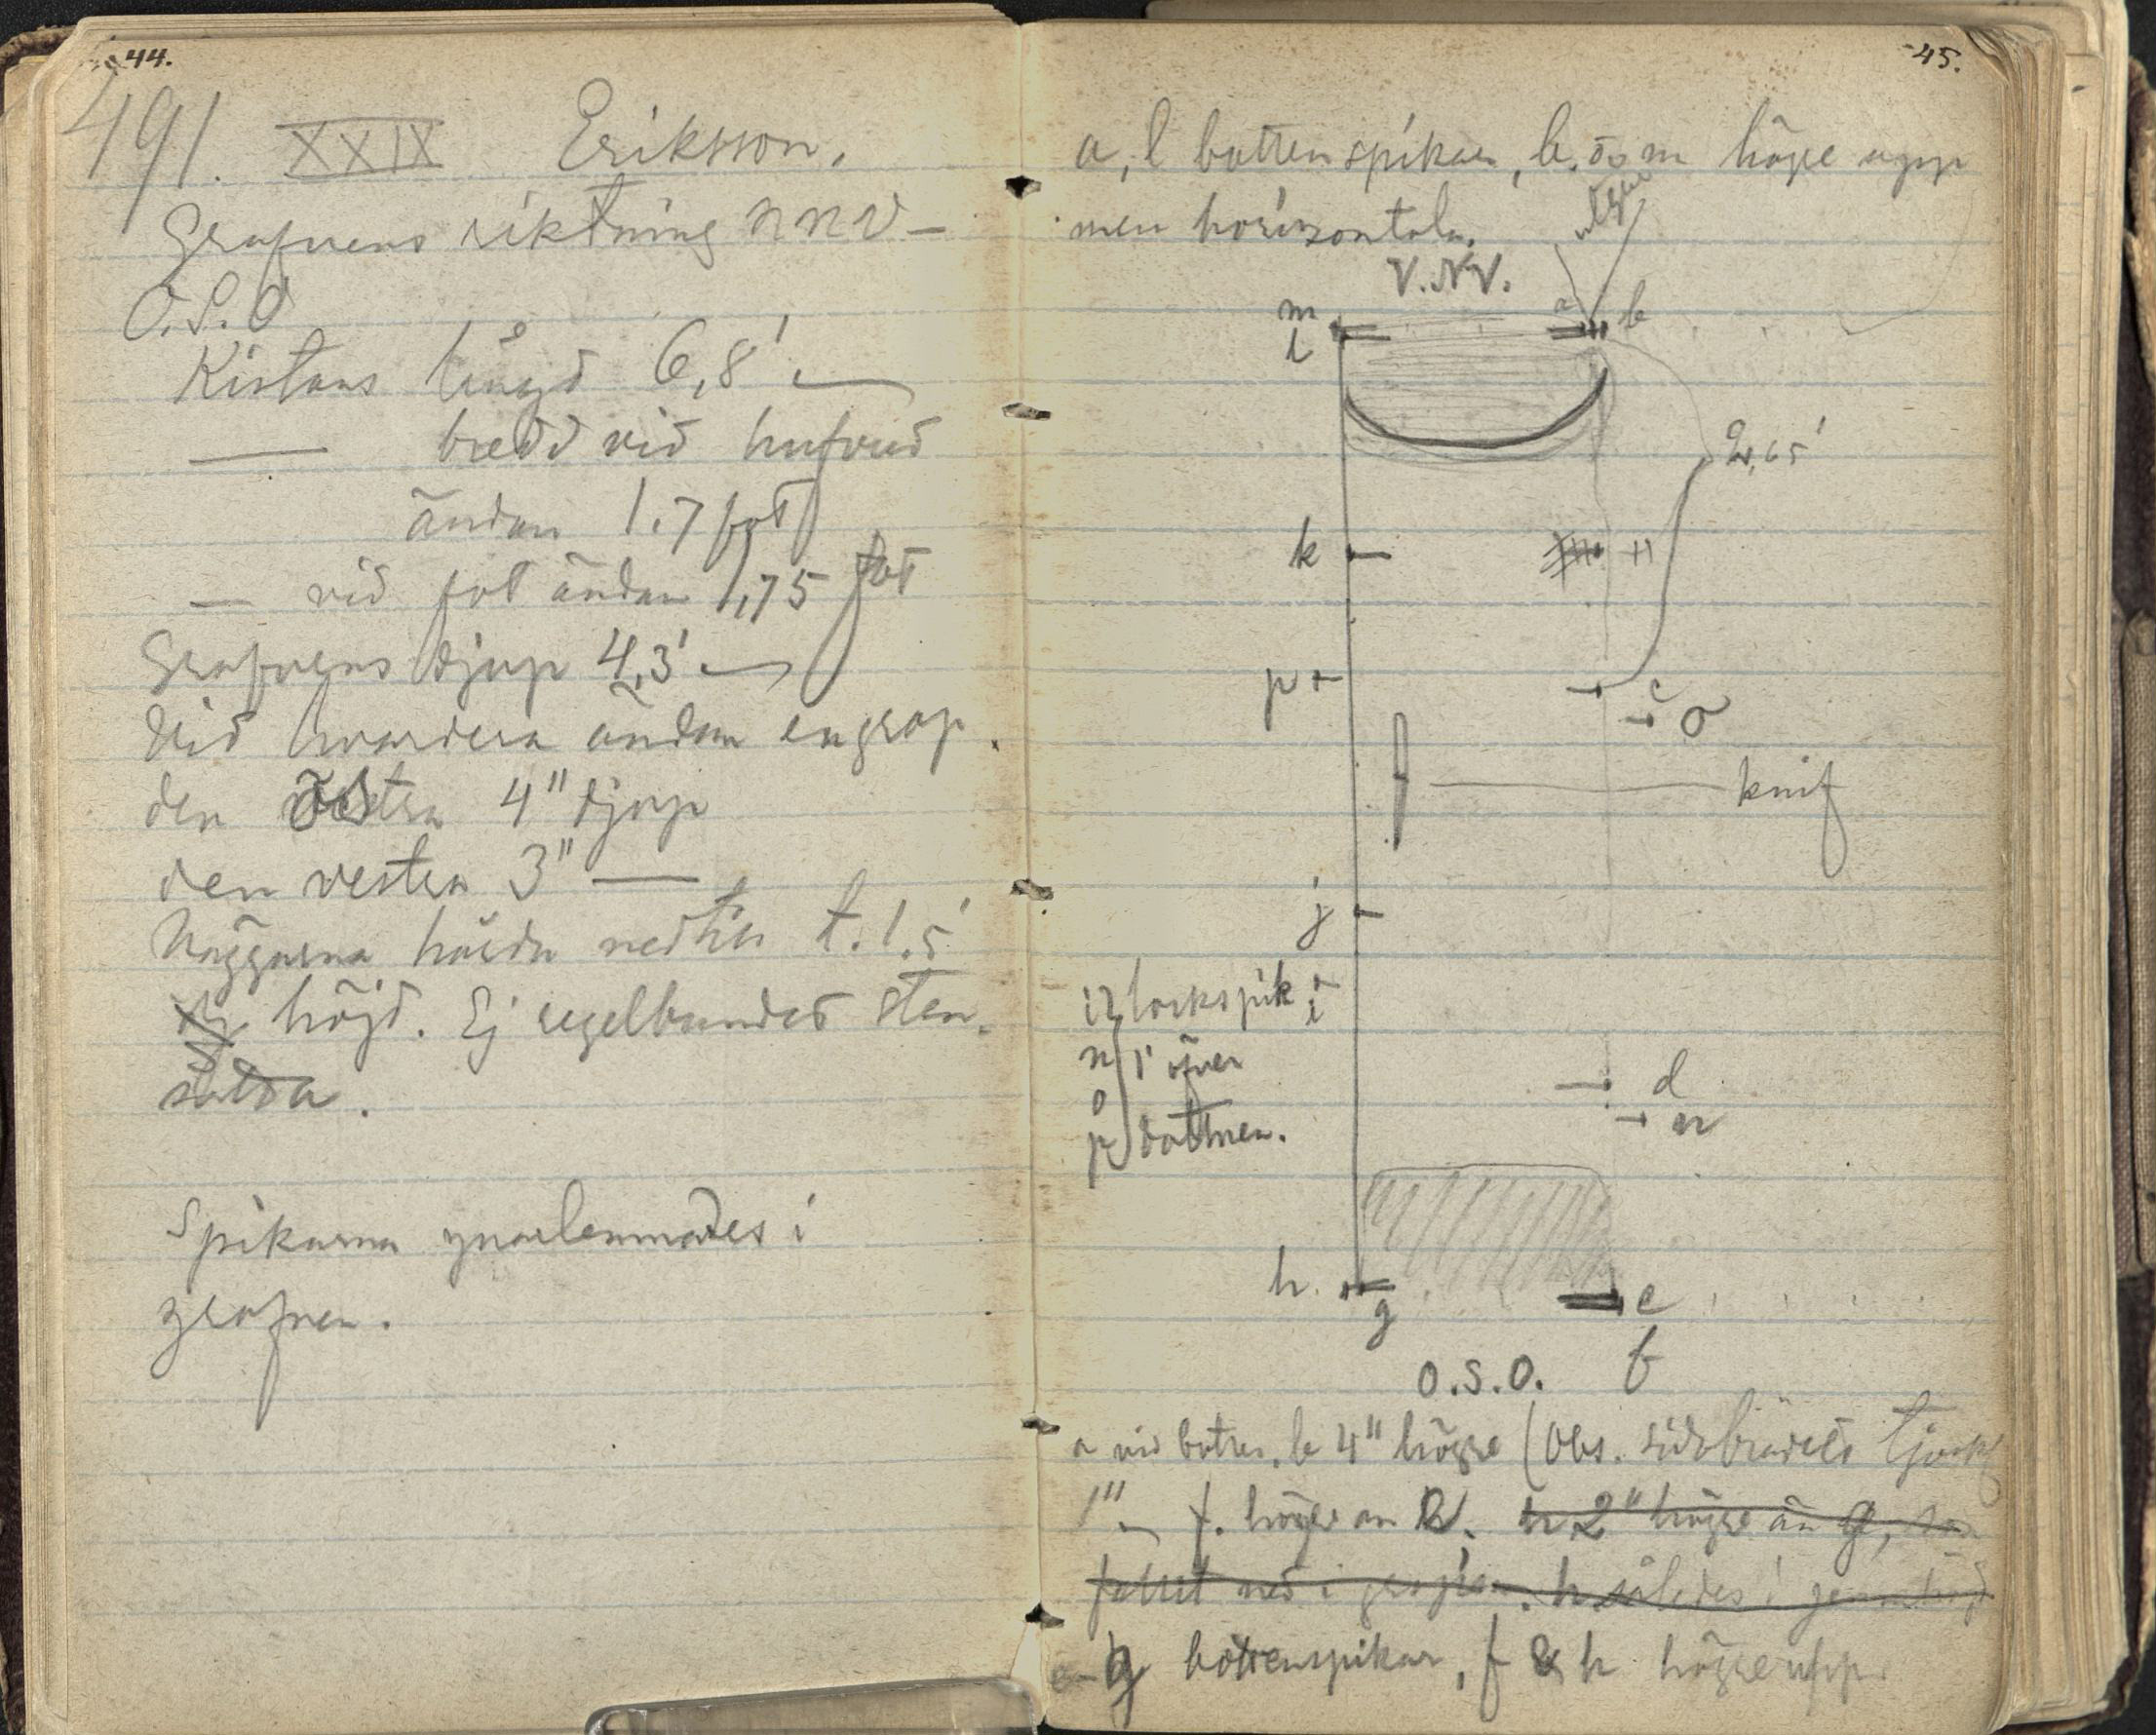 44.
491. XXIX Eriksson.
Grafvens riktning NNV –
O.S.O
Kistans längd 6,8'
— bredd vid hufvud
ändan 1.7 fot
— vid fot ändan 1,75 fot
Grafvens djup 4,3'
Vid hvardera ändan en grop.
den östra 4" djup
den vestra 3" —
Väggarna hårda nedtill t. 1.5'
höjd. Ej regelbundet sten-
satta.
Spikarna qvarlemnades i
grafven.
45.
a, l bottenspikar, b. o m högre upp
men horizontala.
V.NV.
m
l
a
b
2,65'
k
p
c
o
knif
j
i
i lockspik
n 1' öfver
o
p bottnen.
d
n
h.
g
e
f
O.S.O.
a vid botten. b 4" högre (Obs. sidobrädets tjockl
1" f. högre än e. h 2" högre än g,
fallit ned i gropen. h således i jemnhöjd
e g bottenspikar, f & h högre upp.